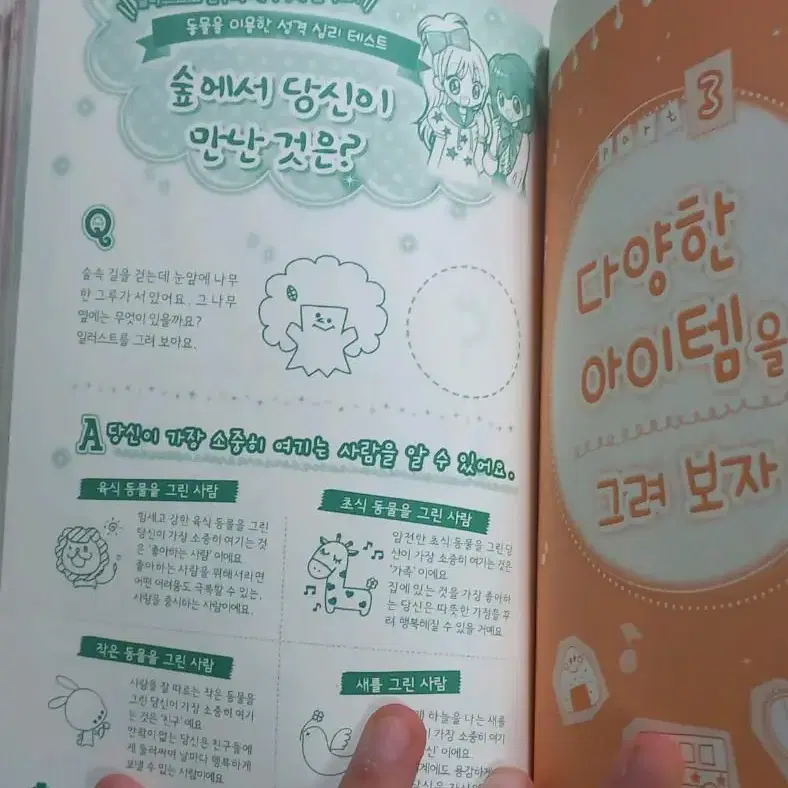 동물을 이용한 성격 심리 테스트
숲에서 당신이
만난 것은?
Q
숲속 길을 걷는데 눈앞에 나무
한 그루가 서 있어요. 그 나무
옆에는 무엇이 있을까요?
일러스트를 그려 보아요.
?
A 당신이 가장 소중히 여기는 사람을 알 수 있어요.
육식 동물을 그린 사람
힘세고 강한 육식 동물을 그린
당신이 가장 소중히 여기는 것
은 '좋아하는 사람'이에요.
좋아하는 사람을 위해서라면
어떤 어려움도 극복할 수 있는,
사랑을 중시하는 사람이에요.
초식 동물을 그린 사람
얌전한 초식 동물을 그린 당
신이 가장 소중히 여기는 것은
'가족'이에요.
집에 있는 것을 가장 좋아하
는 당신은 따뜻한 가정을 꾸
려 행복해질 수 있을 거예요.
작은 동물을 그린 사람
사람을 잘 따르는 작은 동물을
그린 당신이 가장 소중히 여기
는 것은 '친구'예요.
안락이 없는 당신은 친구들에
게 둘러싸여 날마다 행복하게
보낼 수 있는 사람이에요.
새를 그린 사람
하늘을 나는 새를
가장 소중히 여기
신'이에요.
에도 용감하게
part 3
다양한
아이템을
그려 보자